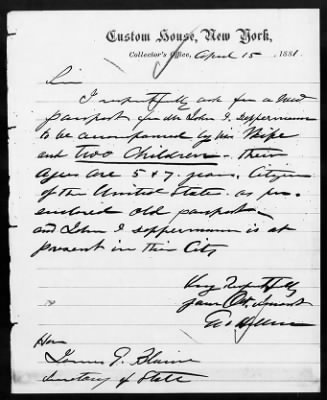 Custom House, New York,
Collector's Office, April 15, 1881
Sir
I respectfully ask for a new
passport for Mr John I
to be accompanied by his Wife
and two Children - their
ages are 5 & 7 years. Citizen
of the United State. as per
enclosed old passport -
and John I is at
present in this City
Very Respectfully
your Obt. Servant
Hon
James G. Blaine
Secretary of State